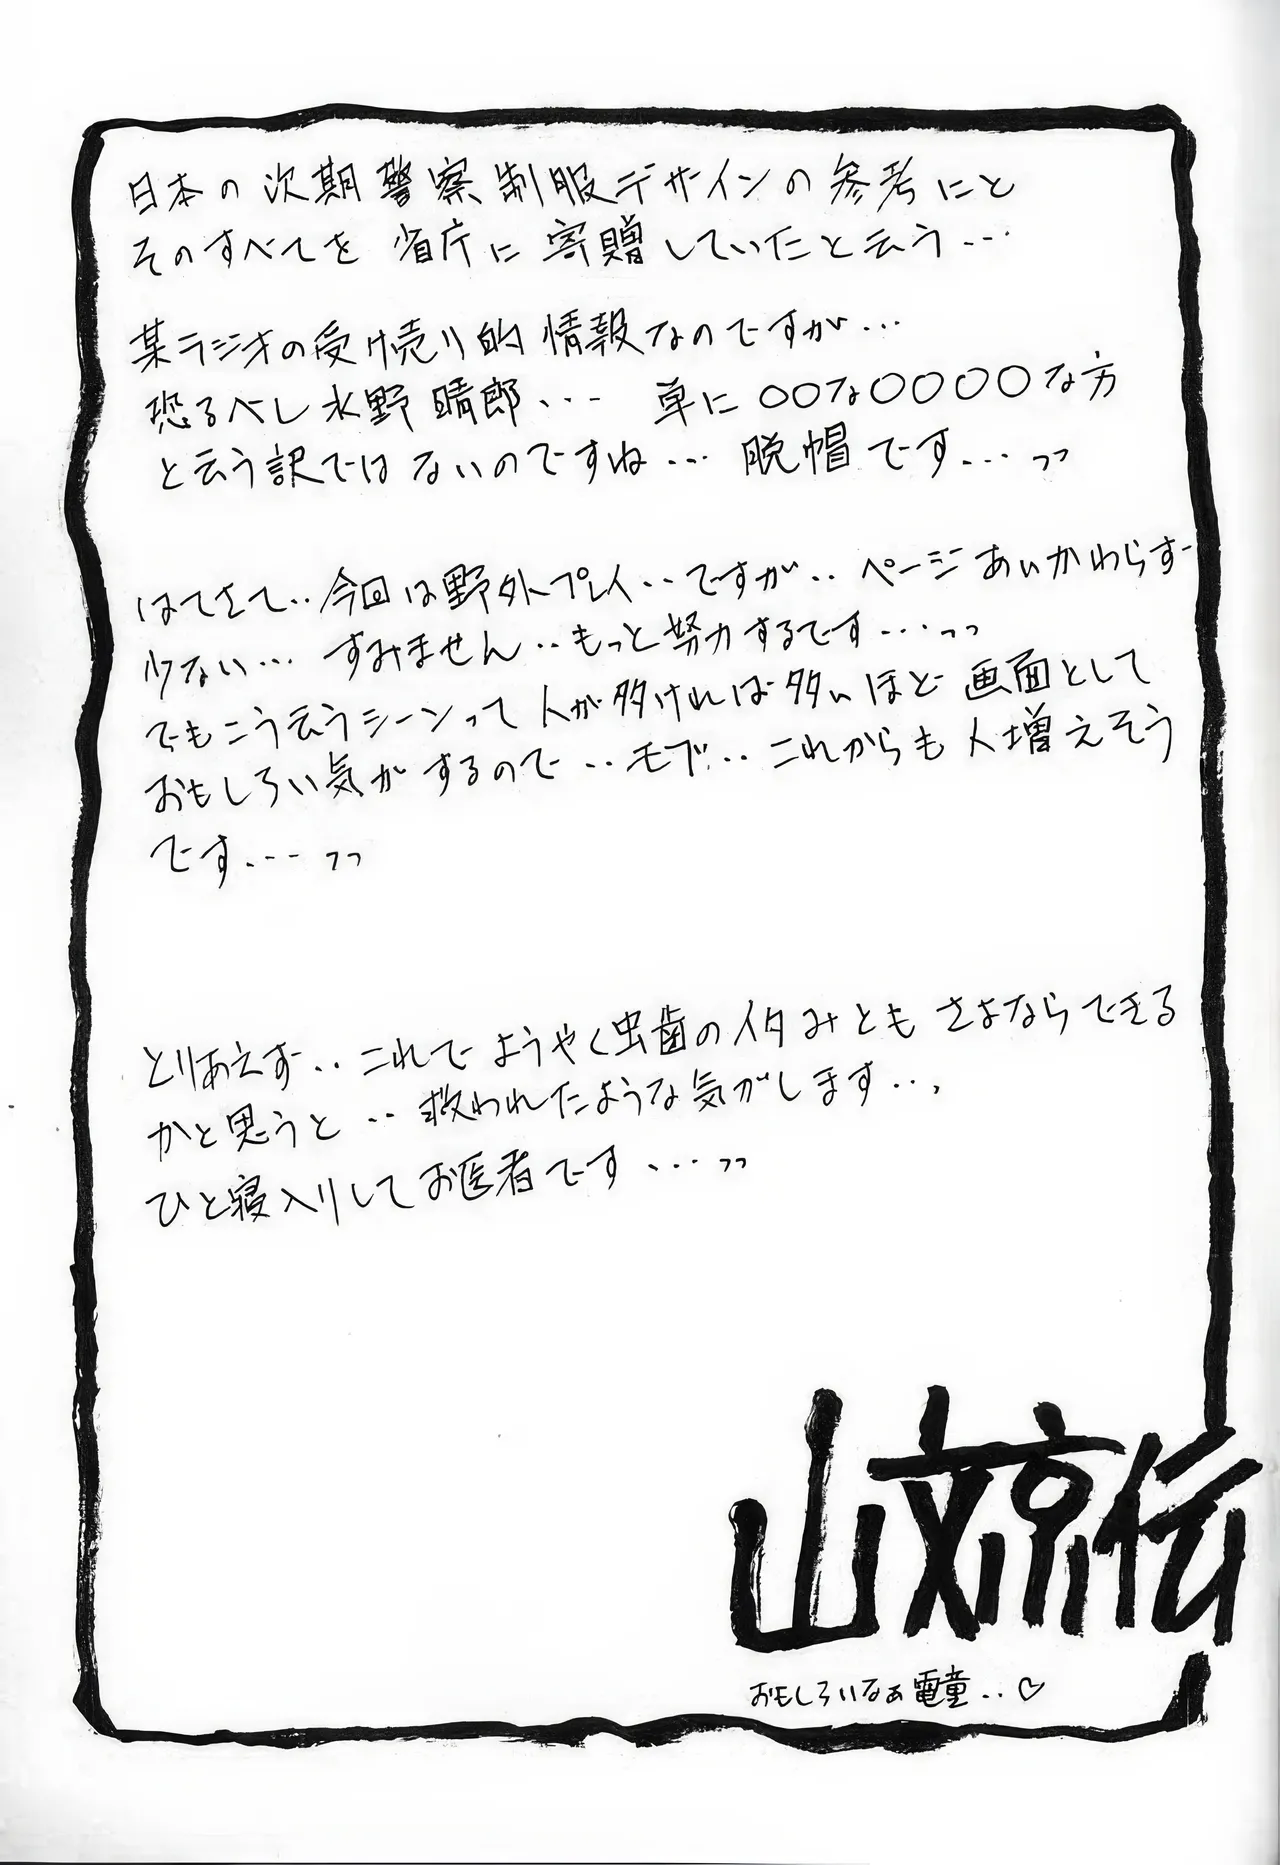 日本の次期警察制服デザインの参考にと
そのすべてを省庁に寄贈していたと云う…
某ラジオの受け売り的情報なのですが…
恐るべし水野晴郎… 単に○○な○○○○な方
と云う訳ではないのですね… 脱帽です…ッッ
はてさて‥今回は野外プレイ‥ですが‥ページあいかわらず
少ない… すみません‥もっと努力するです…ッッ
でもこう云うシーンって人が多ければ多いほど画面として
おもしろい気がするので‥モブ‥これからも人増えそう
です…ッッ
とりあえず‥これでようやく虫歯のイタみともさよならできる
かと思うと‥救われたような気がします…
ひと寝入りしてお医者です…ッッ
山文京伝
おもしろいなぁ電童‥♡